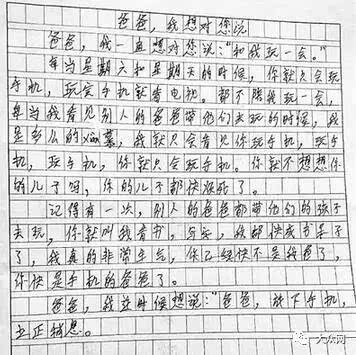 爸爸,我想对您说
爸爸,我一直想对您说:“和我玩一会。”
每当星期六和星期天的时候,你就只会玩
手机,玩完手机就看电视。都不陪我玩一会,
每当我看见别人的爸爸带他们去玩的时候,我
是多么的xiàn慕,我就只会看见你玩手机,玩手
机,玩手机,你就只会玩手机。你就不想想你
的儿子吗,你的儿子都快疯死了。
记得有一次,别人的爸爸都带他们的孩子
去玩,你就叫我看书,写字,我都快成书呆子
了,我真的非常生气,你已经快不是我爸了,
你快是手机的爸爸了。
爸爸,我这时候想说:“爸爸,放下手机,
立正稍息。
大众网